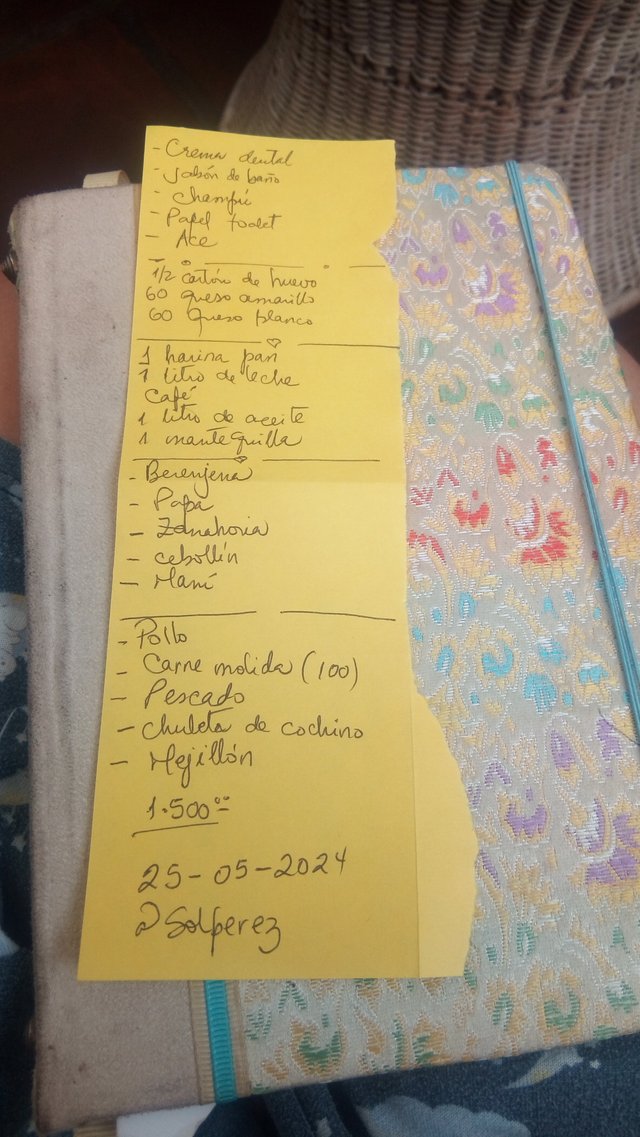 - Crema dental
- Jabón de baño
- Champú
- Papel toalet
- Ace
1/2 cartón de huevo
60 queso amarillo
60 Queso blanco
1 harina pan
1 litro de leche
Café
1 litro de aceite
1 mantequilla
- Berenjena
- Papa
- Zanahoria
- cebollín
- Maní
- Pollo
- Carne molida (100)
- Pescado
- Chuleta de cochino
- Mejillón
1.500=
25-05-2024
Solperez